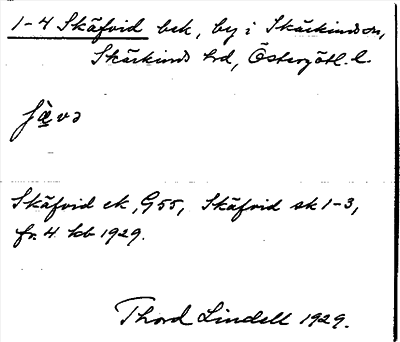 1-4 Skäfvid bek, by i Skärkinds sn,
Skärkinds hd, Östergötl. l.
Skäfvid ek, G55, Skäfvid sk 1-3,
fr. 4 kb 1929.
Thord Lindell 1929.